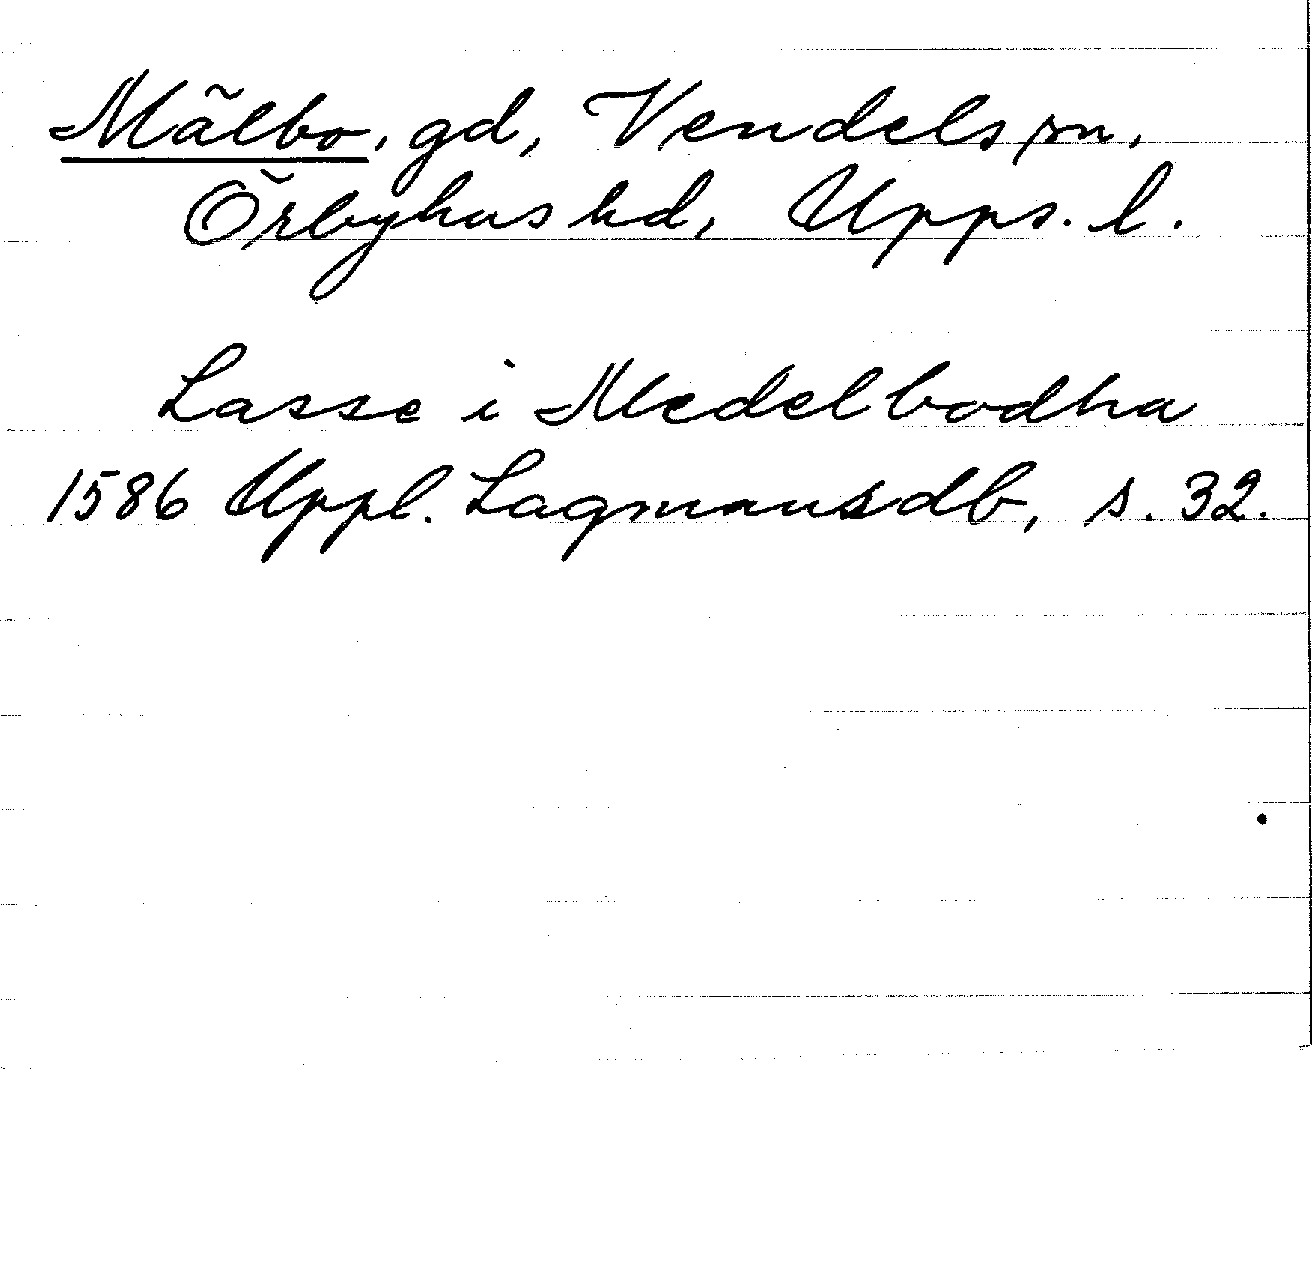 Mälbo, gd, Vendels sn,
Örbyhus hd, Upps. l.
Lasse i Medelbodha
1586 Uppl. Lagmansdb, s. 32.